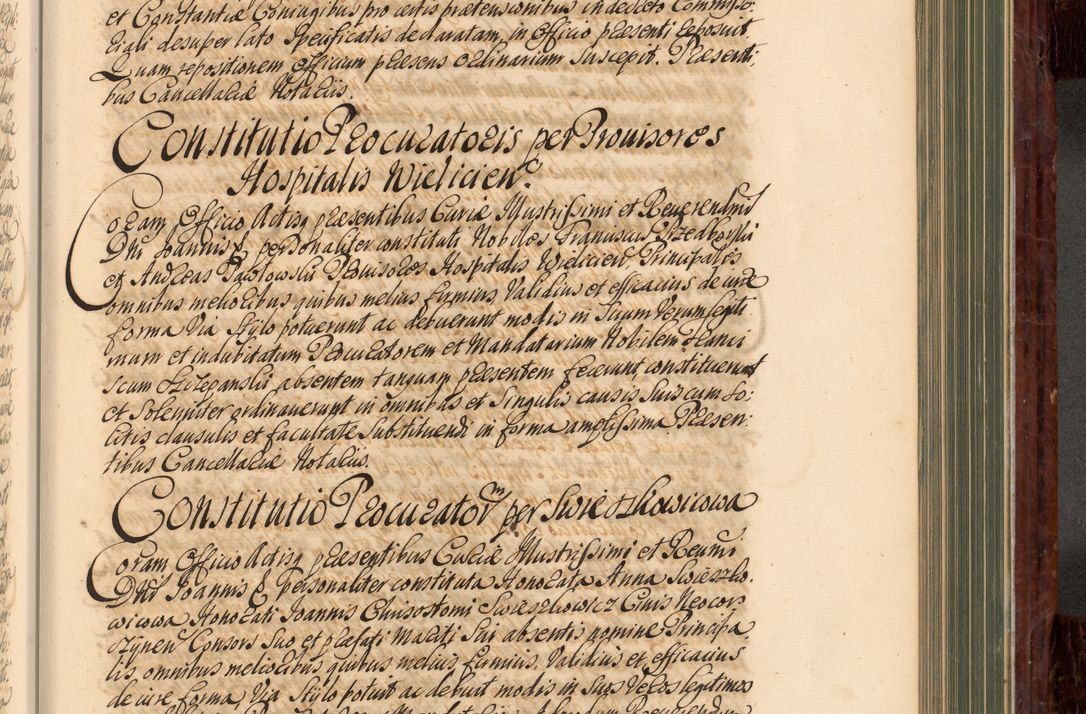 et Constantiæ Coniugibus pro certis prætensionibus in decreto Commisso:
riali desuper lato specificatis declaratam, in Officio præsenti deposuit
Quam repositionem Officium præsens Ordinarium suscepit. Præsenti,
bus Cancellariæ Notariis.
Constitutio Procuratoris per Prouisores
Hospitalis Wielicien:
Coram Officio Actisq præsentibus Curiæ Illustrissimi et Reuerendmi
Dni Joannis & personaliter constituti Nobiles Franciscus Przedborski
et Andreas Pawlowski Prouisores Hospitalis Wielicien, Principales
omnibus melioribus quibus melius firmius Validius et efficacius de iure
forma Via Stylo potuerunt ac debuerunt modis in Suum Verum legit
mum et indubitatum Procuratorem et Mandatarium Nobilem Franci
scum Szczepanski absentem tanquam præsentem fecerunt constituerunt
et Solenniter ordinauerunt in omnibus et Singulis causis Suis cum So:
litis clausulis et facultate Substituendi in forma amplissima. Præsen:
tibus Cancellariæ Notariis.
Constitutio Procuratorm per Swieszkowicowa
Coram Officio Actisq præsentibus Curiæ Illustrissimi et Reuмi
Dni Joannis & personaliter constituta Honorata Anna Swieszko.
wicowa Honorati Joannis Chrisostomi Swieszkowicz Ciuis Neocor
czynen Consors Suo et præfati Mariti Sui absentis nomine Principa
lis, omnibus melioribus quibus melius, firmius, Validius et efficacius
de iure forma Via Stylo potuit ac debuit modis in Suos Veros legitimos